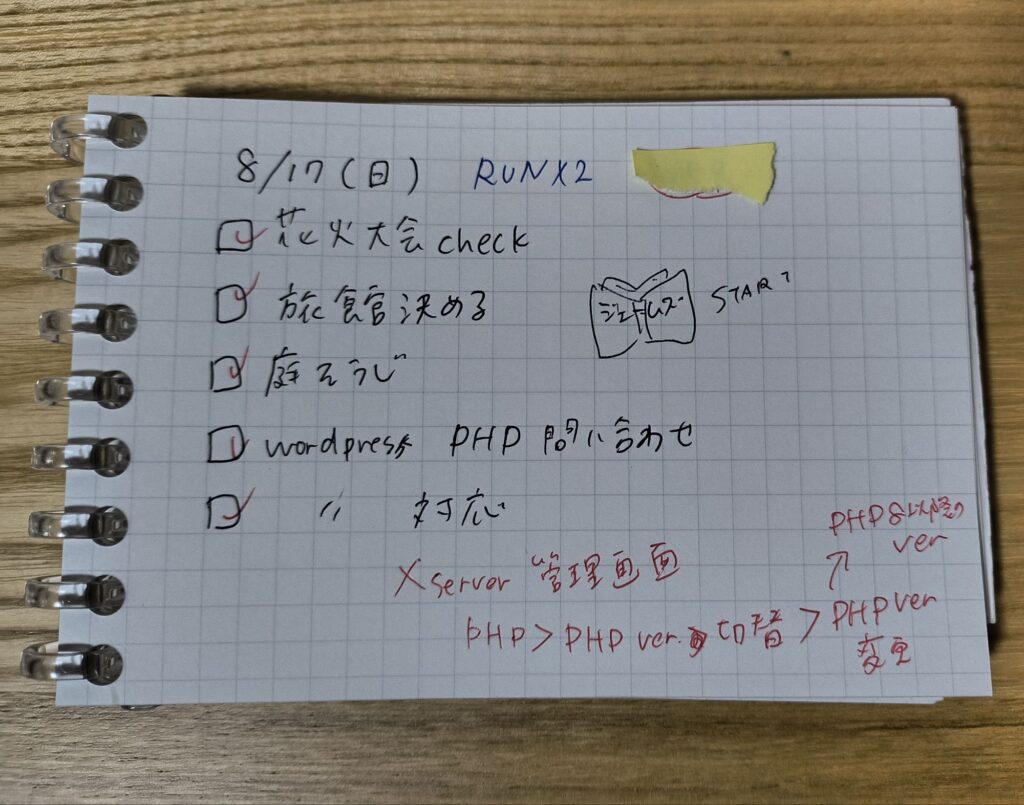 8/17(日) RUN×2
花火大会check
旅館決める
START
庭そうじ
wordpress PHP 問い合わせ
〃 対応
PHP8以降の
ver
Xserver 管理画面
PHP > PHP ver. 切替 > PHP ver
変更